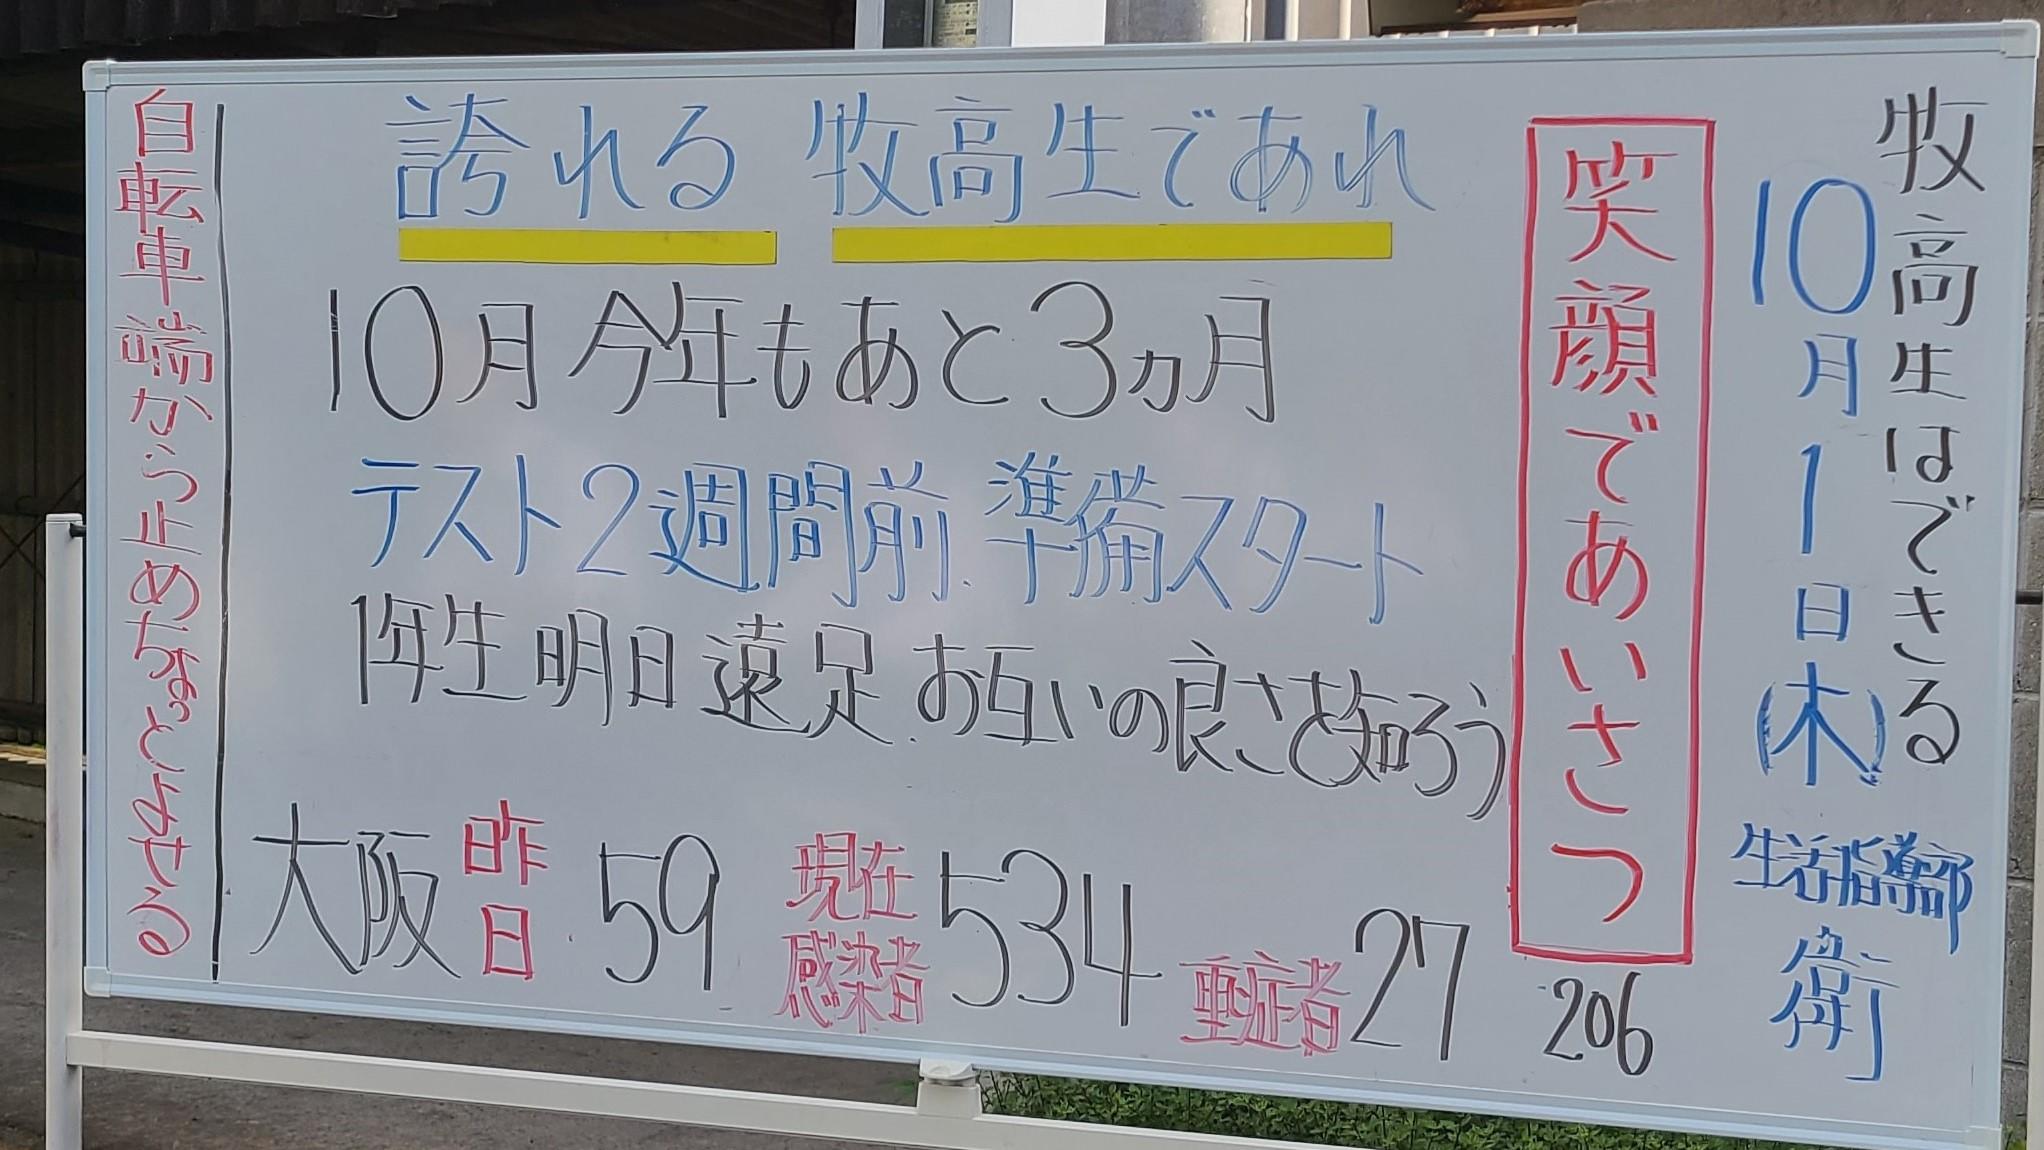 牧高生はできる
10月1日(木)
生活指導部
衛
笑顔であいさつ
206
誇れる 牧高生であれ
10月 今年もあと3ヵ月
テスト2週間前.準備スタート
1年生 明日 遠足.お互いの良さを知ろう
大阪 昨日 59 現在感染者 534 重症者 27
自転車端から止めちょっとよせる